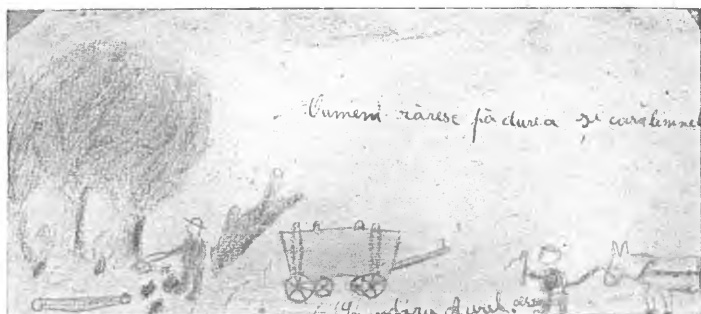 Oameni răresc pădurea și cară lemnel
Aurel